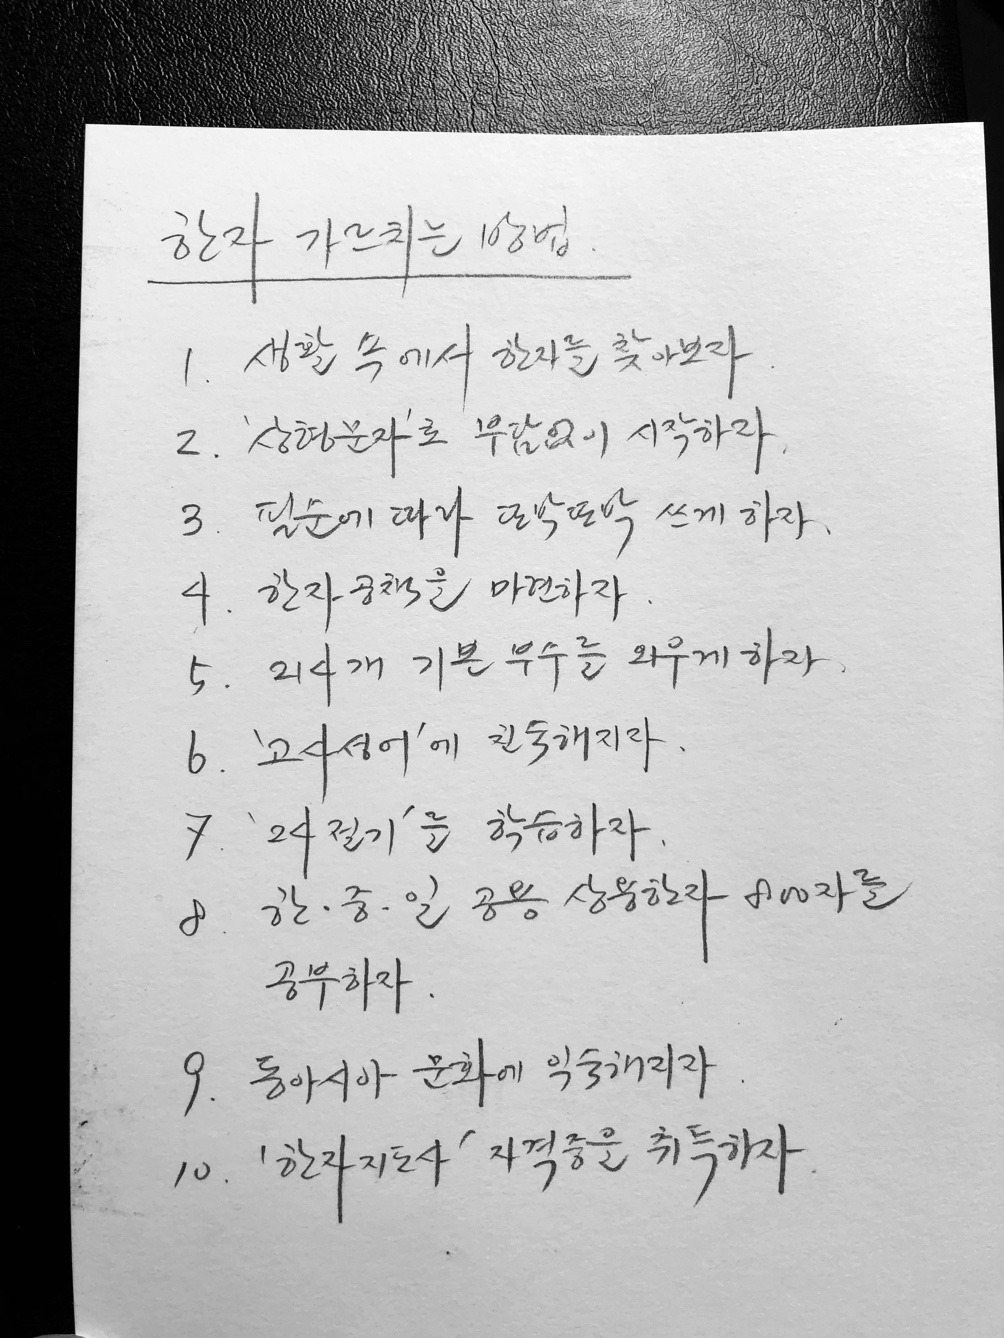 한자 가르치는 방법.
1. 생활 속에서 한자를 찾아보자.
2. '상형문자'로 부담없이 시작하자.
3. 필순에 따라 또박또박 쓰게 하자.
4. 한자공책을 마련하자.
5. 214개 기본 부수를 외우게 하자.
6. '고사성어'에 친숙해지자.
7. '24절기'를 학습하자.
8. 한·중·일 공용 상용한자 800자를
공부하자.
9. 동아시아 문화에 익숙해지자.
10. '한자지도사' 자격증을 취득하자.